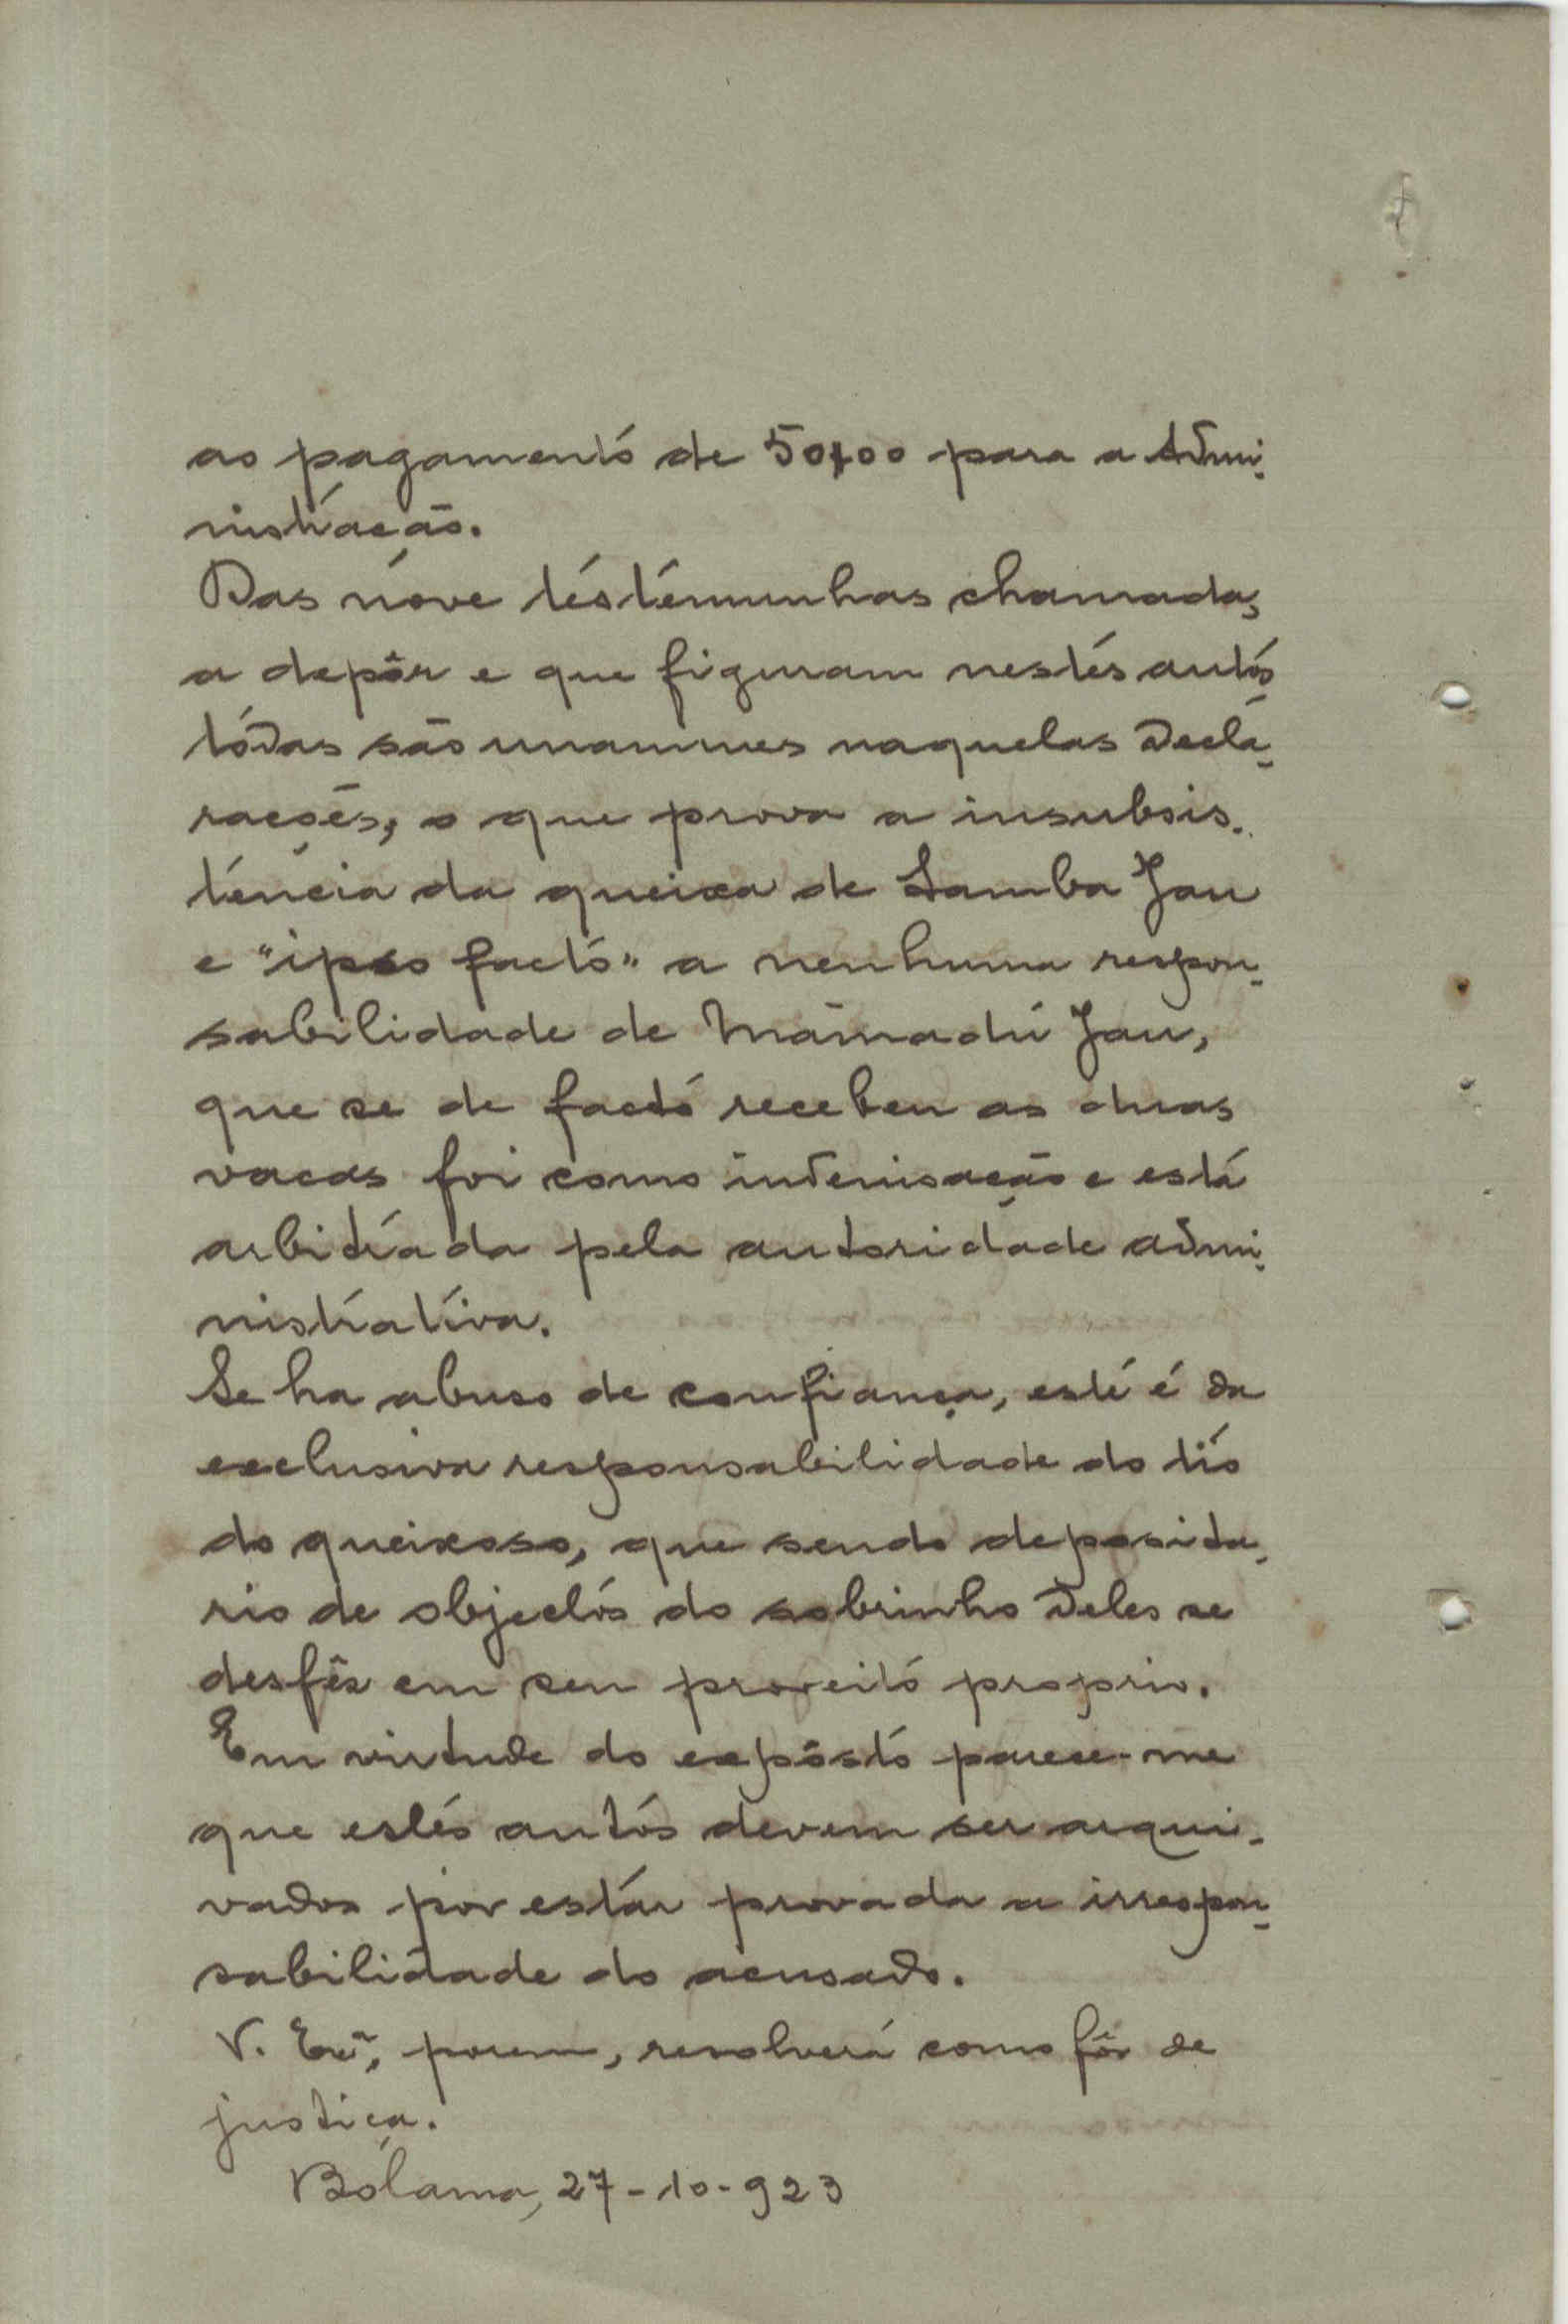 ao pagamento de 50$00 para a Admi-
nistração.
Das nove testemunhas chamadas
a depôr e que figuram nestes autos
todas são unanimes naquelas decla-
rações, o que prova a insubsis-
tencia da queixa de Samba Jau
e "ipso facto" a nenhuma respon-
sabilidade de Mamadú Jau,
que se de facto recebeu as duas
vacas foi como indemisação e está
arbitrada pela autoridade admi-
nistrativa.
Se ha abuso de confiança, este é da
exclusiva responsabilidade do tio
do queixoso, que sendo deposita-
rio de objectos do sobrinho deles se
desfês em seu proveito proprio.
Em virtude do expôsto parece-me
que estes autos devem ser arqui-
vados por estár provada a irrespon-
sabilidade do acusado.
V. Exª, porem, resolverá como fôr de
justiça.
Bolama, 27-10-923